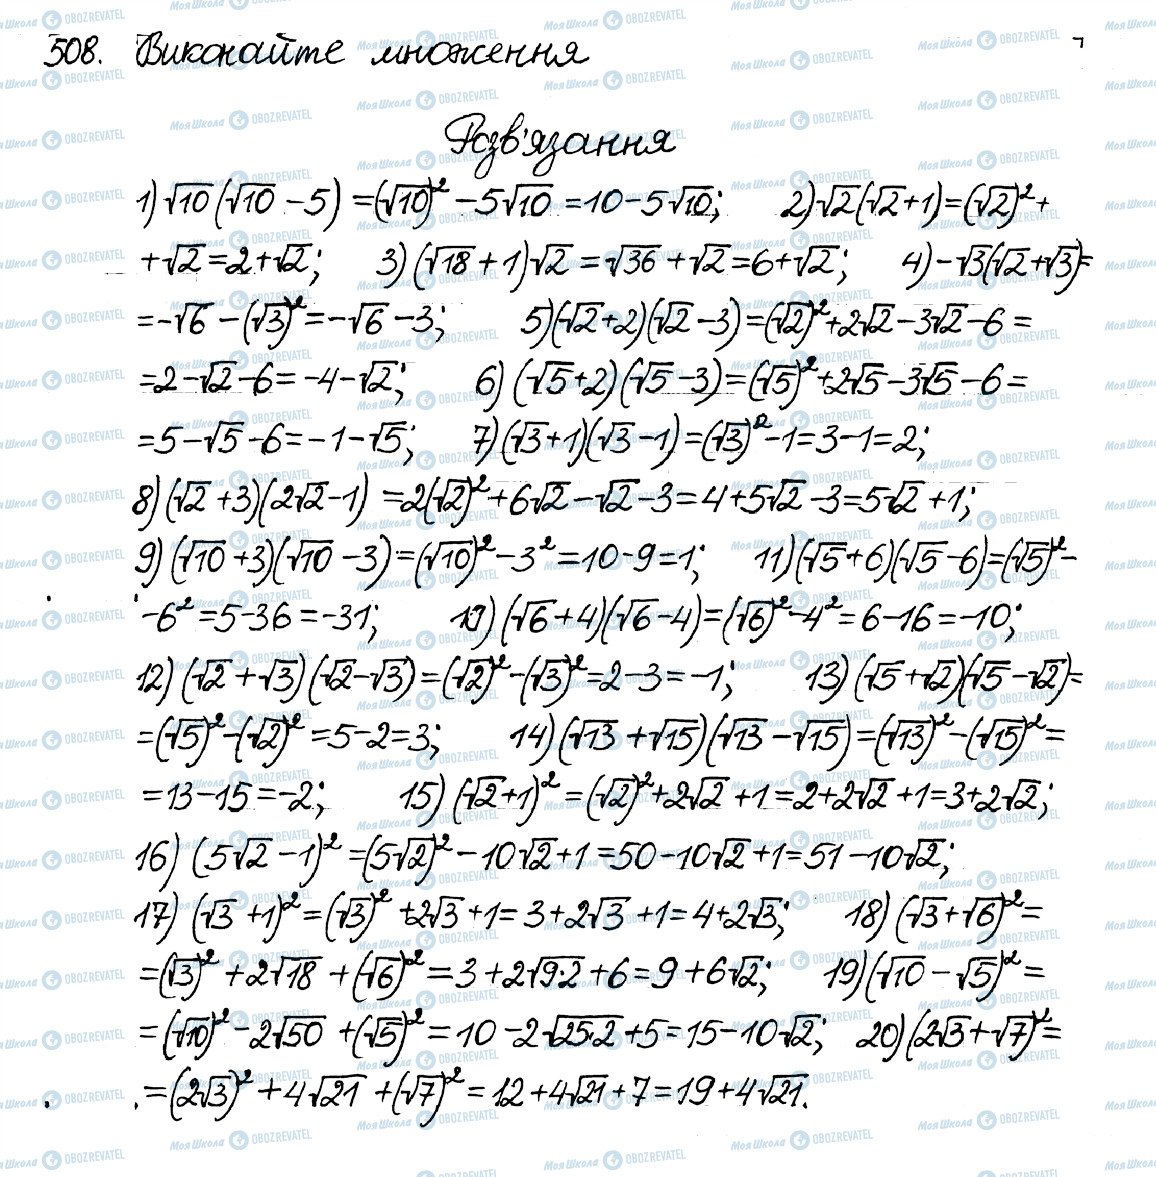 508. Виконайте множення
Розв'язання
1) √10 (√10 - 5) = (√10)² - 5√10 = 10 - 5√10; 2) √2(√2+1) = (√2)² +
+ √2 = 2 + √2; 3) (√18 + 1)√2 = √36 + √2 = 6 + √2; 4) -√3(√2+√3) =
= -√6 - (√3)² = -√6 - 3; 5) (√2+2)(√2-3) = (√2)² + 2√2 - 3√2 - 6 =
= 2 - √2 - 6 = -4 - √2; 6) (√5+2)(√5-3) = (√5)² + 2√5 - 3√5 - 6 =
= 5 - √5 - 6 = -1 - √5; 7) (√3+1)(√3-1) = (√3)² - 1 = 3 - 1 = 2;
8) (√2 + 3)(2√2 - 1) = 2(√2)² + 6√2 - √2 - 3 = 4 + 5√2 - 3 = 5√2 + 1;
9) (√10 + 3)(√10 - 3) = (√10)² - 3² = 10 - 9 = 1; 11) (√5+6)(√5-6) = (√5)² -
- 6² = 5 - 36 = -31; 10) (√6+4)(√6-4) = (√6)² - 4² = 6 - 16 = -10;
12) (√2 + √3)(√2 - √3) = (√2)² - (√3)² = 2 - 3 = -1; 13) (√5+√2)(√5-√2) =
= (√5)² - (√2)² = 5 - 2 = 3; 14) (√13 + √15)(√13 - √15) = (√13)² - (√15)² =
= 13 - 15 = -2; 15) (√2+1)² = (√2)² + 2√2 + 1 = 2 + 2√2 + 1 = 3 + 2√2;
16) (5√2 - 1)² = (5√2)² - 10√2 + 1 = 50 - 10√2 + 1 = 51 - 10√2;
17) (√3 + 1)² = (√3)² + 2√3 + 1 = 3 + 2√3 + 1 = 4 + 2√3; 18) (√3 + √6)² =
= (√3)² + 2√18 + (√6)² = 3 + 2√9·2 + 6 = 9 + 6√2; 19) (√10 - √5)² =
= (√10)² - 2√50 + (√5)² = 10 - 2√25·2 + 5 = 15 - 10√2; 20) (2√3 + √7)² =
= (2√3)² + 4√21 + (√7)² = 12 + 4√21 + 7 = 19 + 4√21.